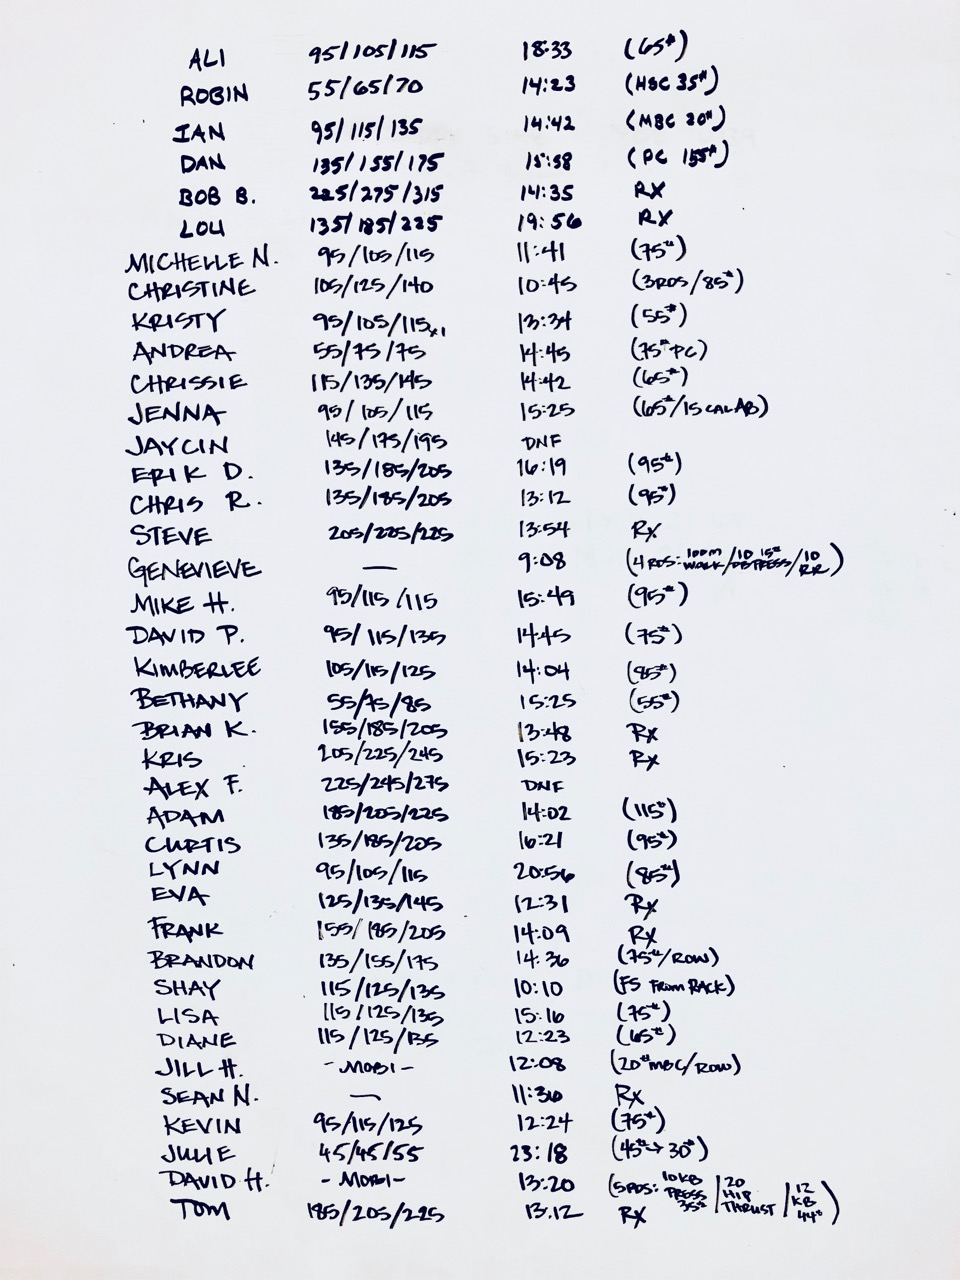 ALI 95/105/115 18:33 (65#)
ROBIN 55/65/70 14:23 (HSC 35#)
IAN 95/115/135 14:42 (MBC 20#)
DAN 135/155/175 15:58 (PC 155#)
BOB B. 225/275/315 14:35 RX
LOU 135/185/225 19:56 RX
MICHELLE N. 95/105/115 11:41 (75#)
CHRISTINE 105/125/140 10:45 (3RDS/85#)
KRISTY 95/105/115x1 13:34 (55#)
ANDREA 55/75/75 14:45 (75# PC)
CHRISSIE 115/135/145 14:42 (65#)
JENNA 95/105/115 15:25 (65#/15 CAL AB)
JAYCIN 145/175/195 DNF
ERIK D. 135/185/205 16:19 (95#)
CHRIS R. 135/185/205 13:12 (95#)
STEVE 205/225/225 13:54 RX
GENEVIEVE — 9:08 (4 RDS: 100M WALK/10 15# DB PRESS/10 RR)
MIKE H. 95/115/115 15:49 (95#)
DAVID P. 95/115/135 14:45 (75#)
KIMBERLEE 105/115/125 14:04 (85#)
BETHANY 55/75/85 15:25 (55#)
BRIAN K. 155/185/205 13:48 RX
KRIS 205/225/245 15:23 RX
ALEX F. 225/245/275 DNF
ADAM 185/205/225 14:02 (115#)
CURTIS 135/185/205 16:21 (95#)
LYNN 95/105/115 20:56 (85#)
EVA 125/135/145 12:31 RX
FRANK 155/185/205 14:09 RX
BRANDON 135/155/175 14:36 (75#/ROW)
SHAY 115/125/135 10:10 (FS From RACK)
LISA 115/125/135 15:16 (75#)
DIANE 115/125/135 12:23 (65#)
JILL H. - MOBI - 12:08 (20# MBC/ROW)
SEAN N. — 11:36 RX
KEVIN 95/115/125 12:24 (75#)
JULIE 45/45/55 23:18 (45#→30#)
DAVID H. - MOBI - 13:20 (5 RDS: 10 KB PRESS 35#/20 HIP THRUST/12 KB 44#)
TOM 185/205/225 13:12 RX